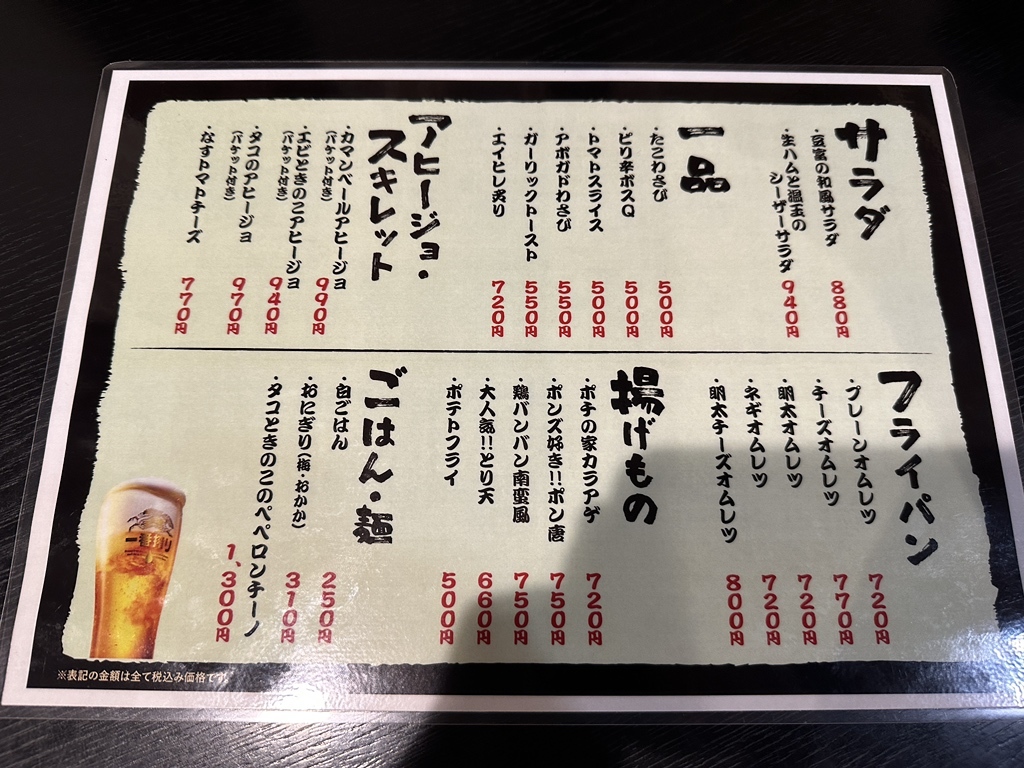 サラダ
・豆富の和風サラダ 880円
・生ハムと温玉の
シーザーサラダ 940円
一品
・たこわさび 500円
・ピリ辛ポスQ 500円
・トマトスライス 500円
・アボガドわさび 550円
・ガーリックトースト 550円
・エイヒレ炙り 720円
アヒージョ・
スキレット
・カマンベールアヒージョ
(バケット付き) 990円
・エビときのこアヒージョ
(バケット付き) 940円
・タコのアヒージョ
(バケット付き) 970円
・なすトマトチーズ 770円
フライパン
・プレーンオムレツ 720円
・チーズオムレツ 770円
・明太オムレツ 720円
・ネギオムレツ 720円
・明太チーズオムレツ 800円
揚げもの
・ポチの家カラアゲ 720円
・ポンズ好き!!ポン唐 750円
・鶏バンバン南蛮風 750円
・大人気!!とり天 660円
・ポテトフライ 500円
ごはん・麺
・白ごはん 250円
・おにぎり(梅・おかか) 310円
・タコときのこのペペロンチーノ 1,300円
一番搾り
※表記の金額は全て税込み価格です。